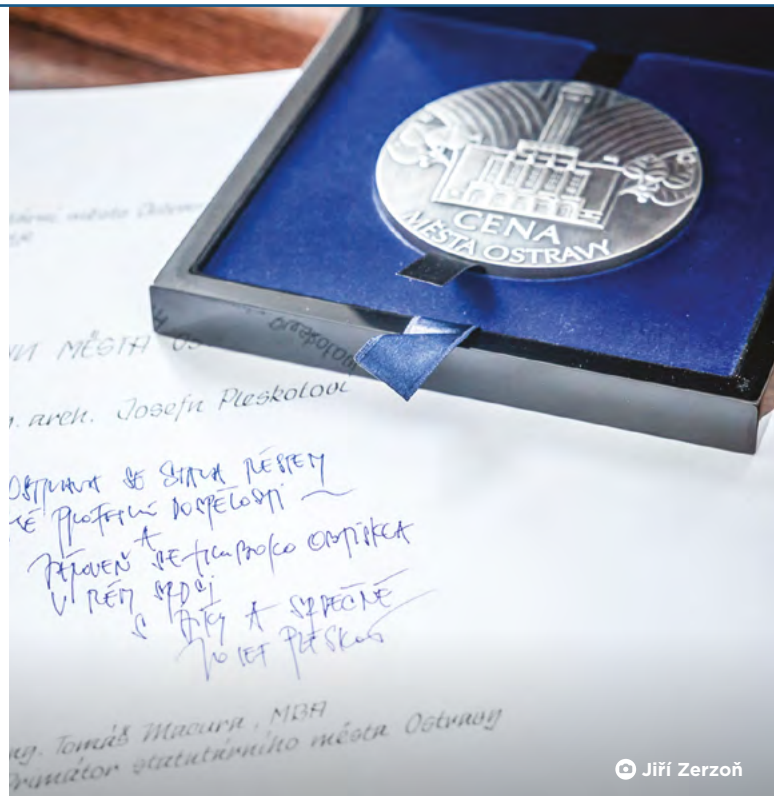 CENA
MĚSTA OSTRAVY
MĚSTA
arch. Josefu Pleskotovi
OSTRAVA SE STALA MĚSTEM
PROFESNÍ DOSPĚLOSTI
A
ZÁROVEŇ SE HLUBOKO OBTISKLA
V MÉM SRDCI
S DÍKY A SRDEČNĚ
JOSEF PLESKOT
Ing. Tomáš Macura, MBA
Primátor statutárního města Ostravy
Jiří Zerzoň